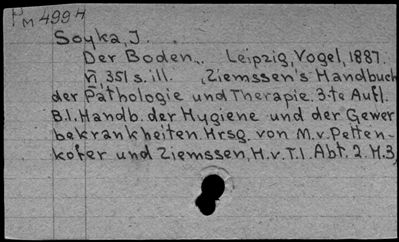 PM 4994
Soyka, J.
Der Boden.. Leipzig, Vogel, 1887.
VI, 351 s. ill. ,Ziemssen's Handbuch
der Pathologie und Therapie. 3-te Aufl.
B.1. Handb. der Hygiene und der Gewer
bekrankheiten. Hrsg. von M.v. Petten-
kofer und Ziemssen, H.v. T.1. Abt. 2. H.3,